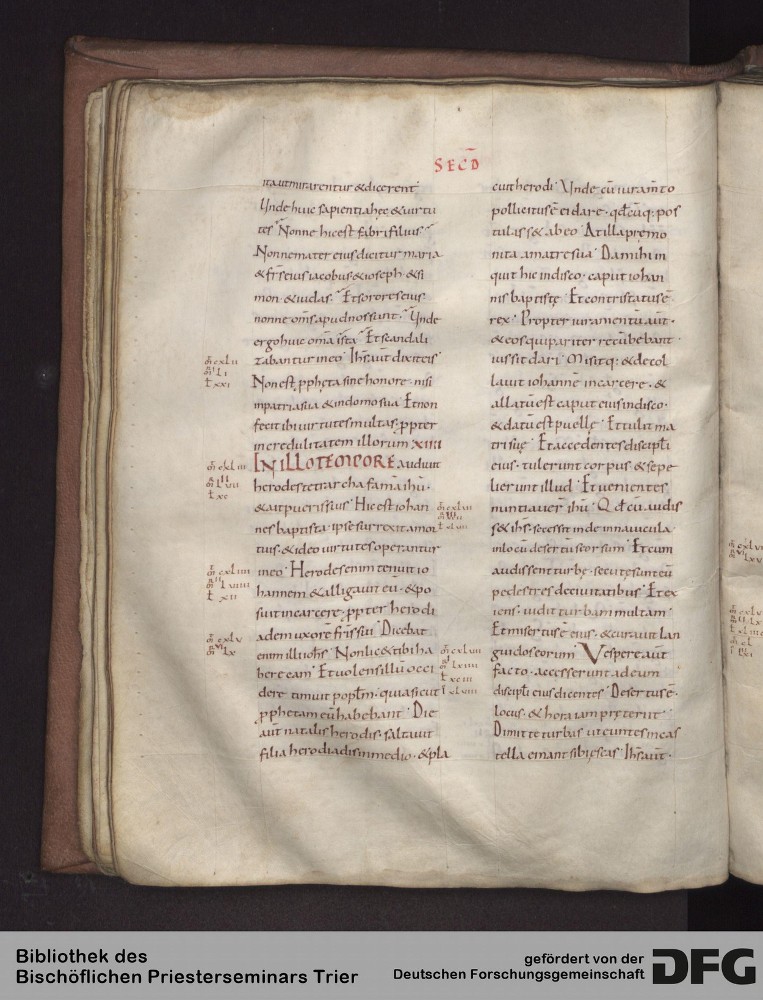 SECD
ita ut mirarentur & dicerent
Unde huic sapientia hęc & uirtu
tes Nonne hic est fabri filius
Nonne mater eius dicitur maria
& frs eius iacobus & ioseph & si
mon & iudas Et sorores eius
nonne oms apud nos sunt Unde
ergo huic oma ista Et scandali
zabantur in eo Ihs aut dixit eis
Non est ppheta sine honore nisi
in patria sua & in domo sua Et non
fecit ibi uirtutes multas ppter
incredulitatem illorum XIIII
IN ILLO TEMPORE audiuit
herodes tetrarcha fama ihu
& ait pueris suis Hic est iohan
nes baptista ipse surrexit a mor
tuis & ideo uirtutes operantur
in eo Herodes enim tenuit io
hannem & alligauit eu & po
suit in carcere ppter herodi
adem uxore fris sui Dicebat
enim illi iohs Non lic& tibi ha
bere eam Et uolens illu occi
dere timuit poptm quia sicut
pphetam eu habebant Die
aut natalis herodis saltauit
filia herodiadis in medio & pla
cuit herodi Unde cu iuramto
pollicitus e ei dare qdcuq pos
tulass& ab eo At illa premo
nita a matre sua Da mihi in
quit hic in disco caput iohan
nis baptistę Et contristatus e
rex Propter iuramentu aut
& eos qui pariter recubebant
iussit dari Misitq & decol
lauit iohanne in carcere &
allatu est caput eius in disco
& datu est puellę Et tulit ma
tri suę Et accedentes discipli
eius tulerunt corpus & sepe
lierunt illud Et uenientes
nuntiauer ihu Qd cu audis
s& ihs secessit inde in nauicula
in locu desertu seorsum Et cum
audissent turbę secutę sunt eu
pedestres de ciuitatibus Et ex
iens uidit turbam multam
Et misertus e eius & curauit lan
guidos eorum Vespere aut
facto accesserunt ad eum
discipli eius dicentes Desertus e
locus & hora iam pręteriit
Dimitte turbas ut euntes in cas
tella emant sibi escas Ihs aut
Bibliothek des
Bischöflichen Priesterseminars Trier
gefördert von der
Deutschen Forschungsgemeinschaft
DFG